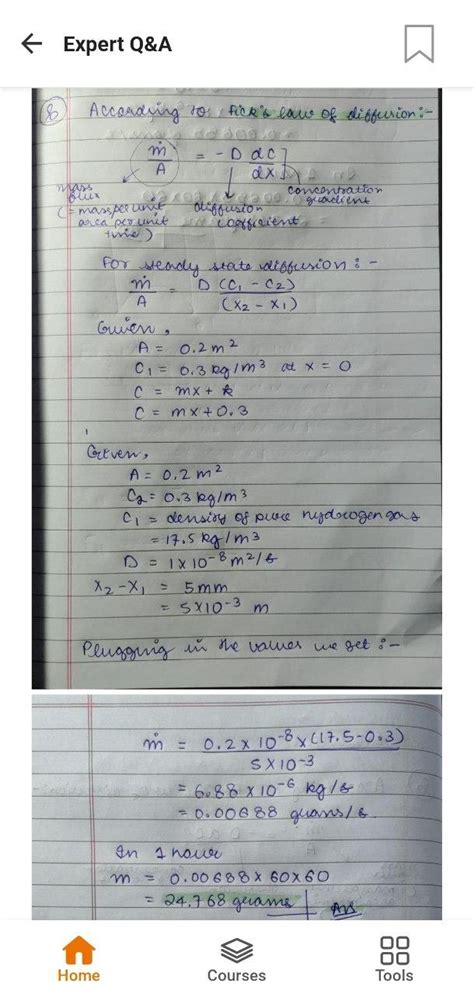 Expert Q&A
8 According to Fick's law of diffusion :-
ṁ/A = - D dC/dx
mass flux
(= mass per unit area per unit time)
diffusion coefficient
concentration gradient
For steady state diffusion : -
ṁ/A = D (C1 - C2)/(x2 - x1)
Given,
A = 0.2 m²
C1 = 0.3 kg/m³ at x = 0
C = mx + k
C = mx + 0.3
Given,
A = 0.2 m²
C2 = 0.3 kg/m³
C1 = density of pure hydrogen gas
= 17.5 kg/m³
D = 1 X 10⁻⁸ m²/s
X2 - X1 = 5 mm
= 5 X 10⁻³ m
Plugging in the values we get : -
ṁ = 0.2 x 10⁻⁸ x (17.5 - 0.3)/5 X 10⁻³
= 6.88 X 10⁻⁶ kg/s
= 0.00688 grams/s.
In 1 hour
m = 0.00688 x 60 x 60
= 24.768 grams Ans
Home
Courses
Tools